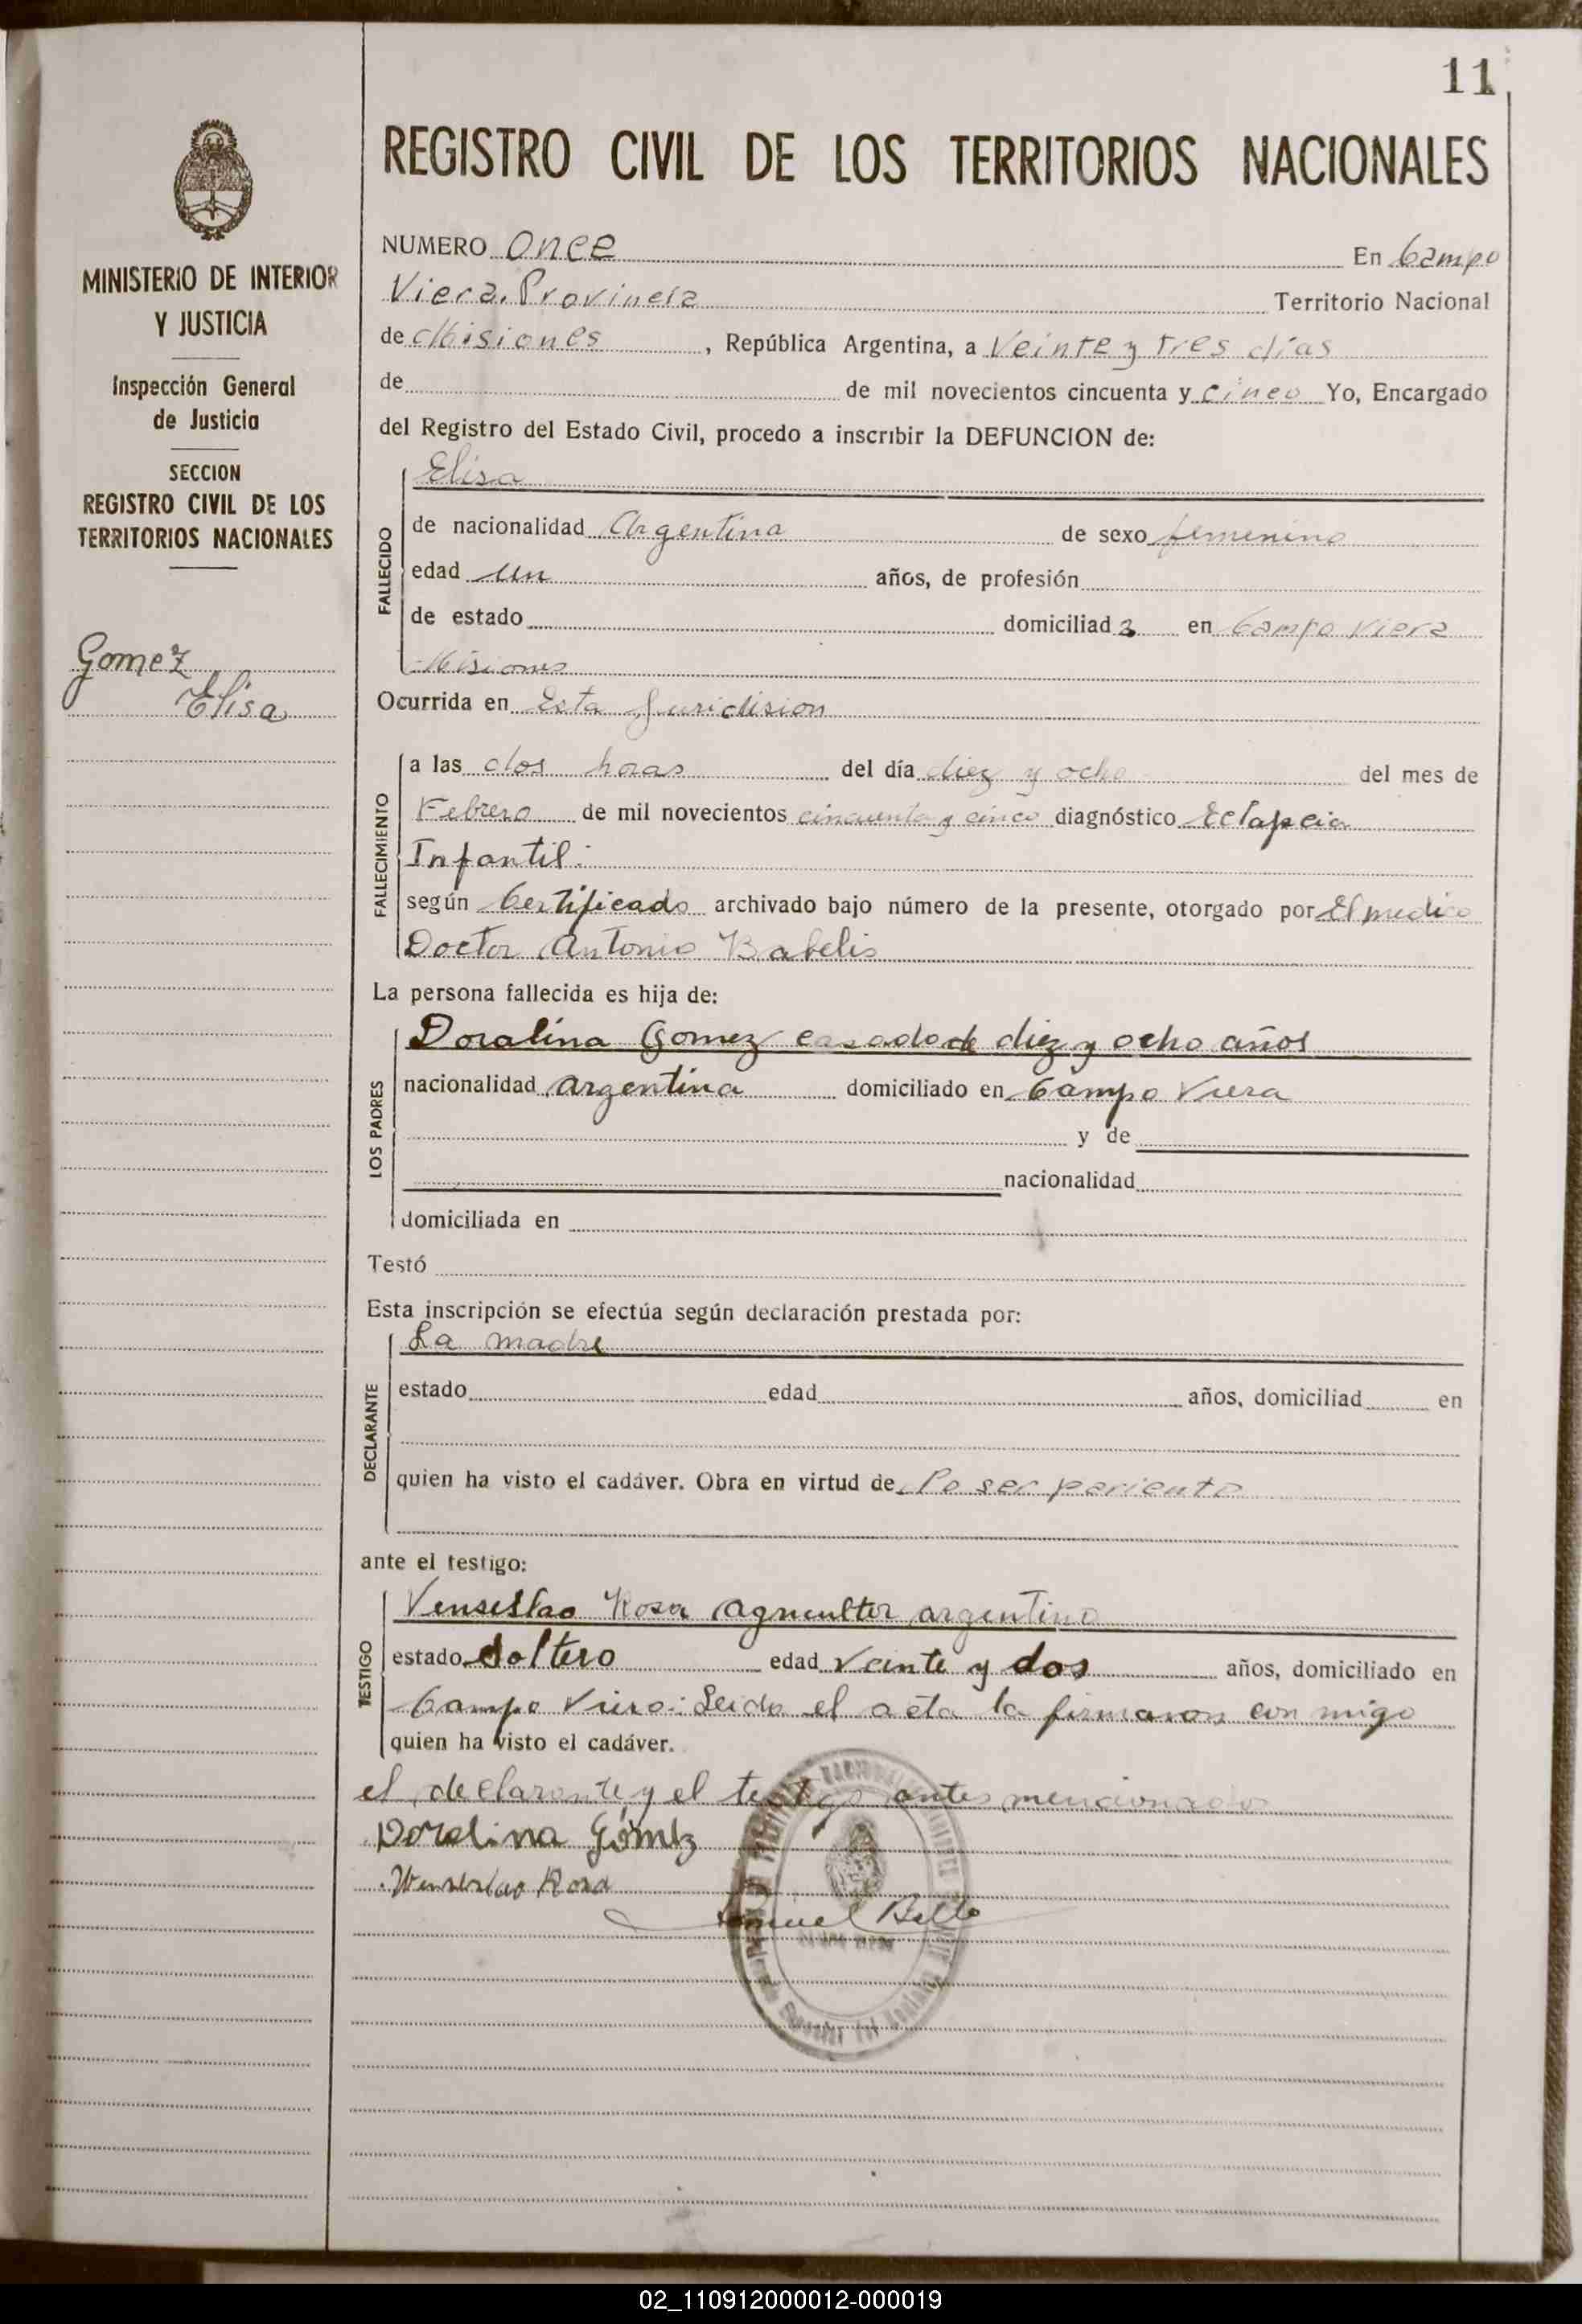 11
REGISTRO CIVIL DE LOS TERRITORIOS NACIONALES
MINISTERIO DE INTERIOR
Y JUSTICIA
Inspección General
de Justicia
SECCION
REGISTRO CIVIL DE LOS
TERRITORIOS NACIONALES
Gomez
Elisa
NUMERO Once En Campo
Viera. Provincia Territorio Nacional
de Misiones, República Argentina, a Veinte y tres días
de de mil novecientos cincuenta y cinco Yo, Encargado
del Registro del Estado Civil, procedo a inscribir la DEFUNCION de:
FALLECIDO
Elisa
de nacionalidad Argentina de sexo femenino
edad un años, de profesión
de estado domiciliada en Campo Viera
Misiones
Ocurrida en Esta Juridision
FALLECIMIENTO
a las dos horas del día diez y ocho del mes de
Febrero de mil novecientos cincuenta y cinco diagnóstico Eclapcia
Infantil.
según Certificado archivado bajo número de la presente, otorgado por El medico
Doctor Antonio Babelis
La persona fallecida es hija de:
LOS PADRES
Doralina Gomez casado de diez y ocho años
nacionalidad argentina domiciliado en Campo Viera
y de
nacionalidad
domiciliada en
Testó
Esta inscripción se efectúa según declaración prestada por:
DECLARANTE
La madre
estado edad años, domiciliad en
quien ha visto el cadáver. Obra en virtud de Po ser pariente
ante el testigo:
TESTIGO
Venseslao Rosa agricultor argentino
estado Soltero edad veinte y dos años, domiciliado en
Campo Viera: Leido el acta la firmaron con migo
quien ha visto el cadáver.
el declarante y el testigo antes mencionado
Doralina Gómez
Wenseslao Rosa
Samuel Bello
02_110912000012-000019